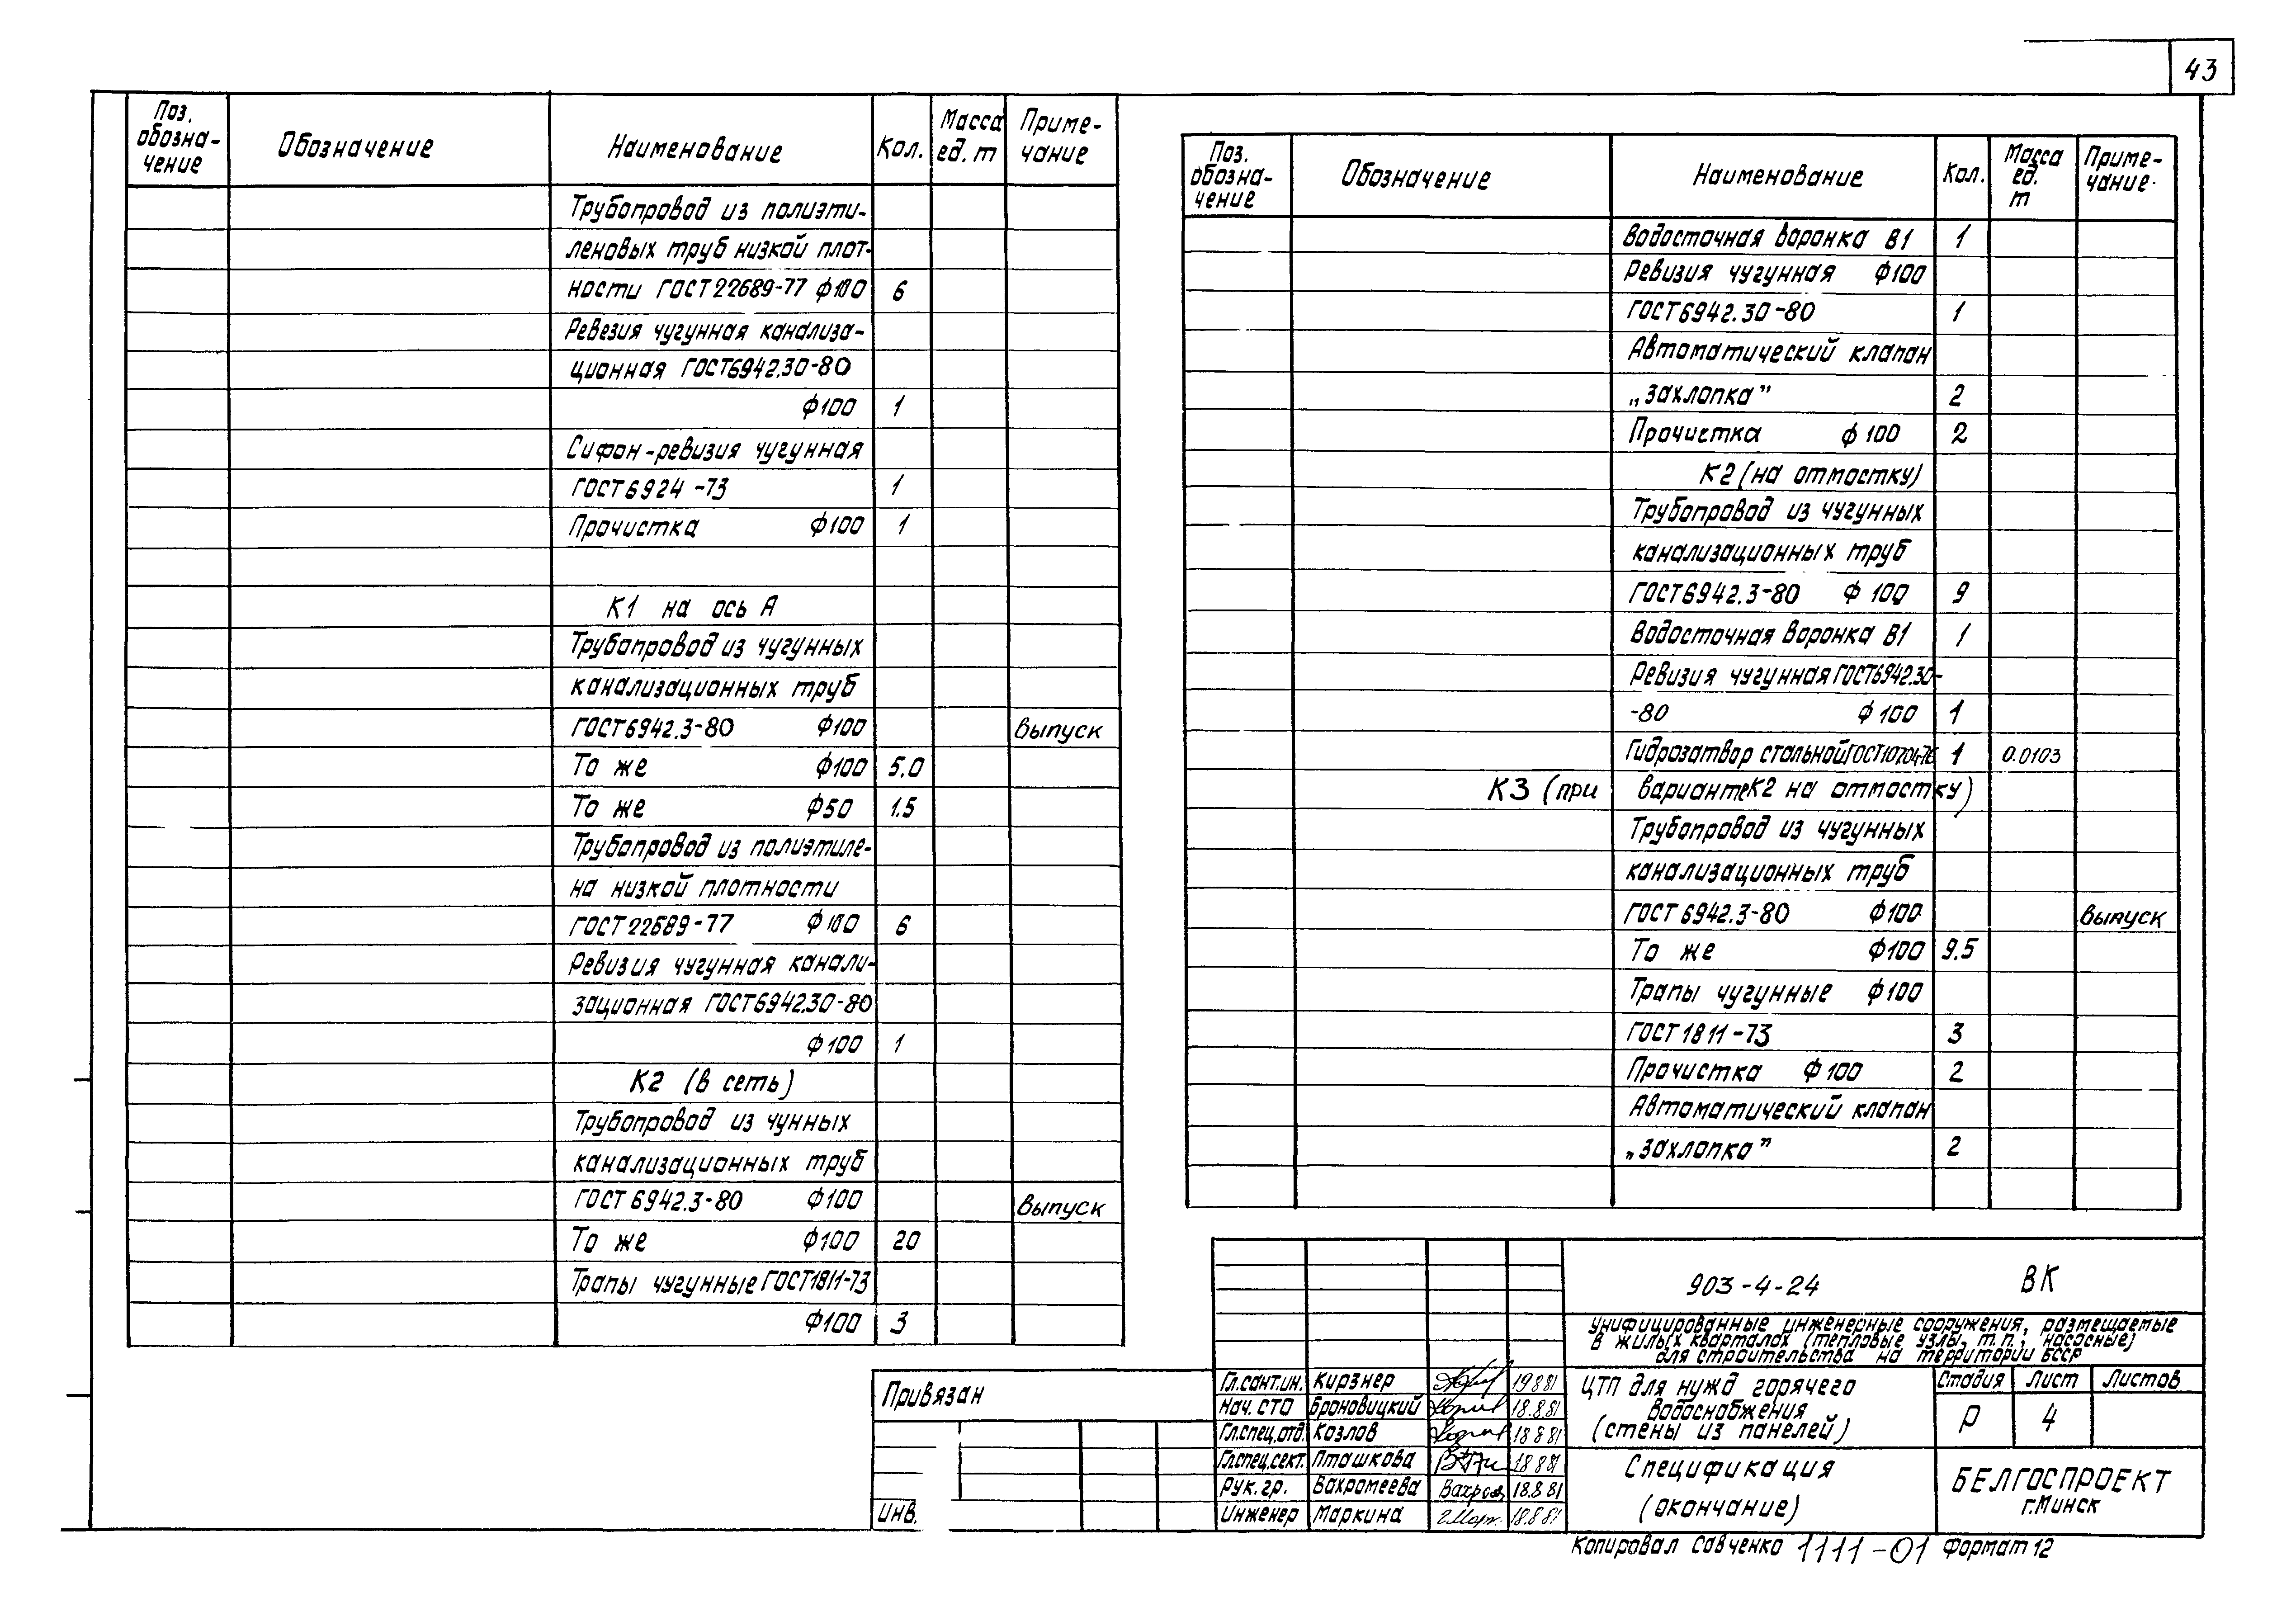 43
Поз. обозна-чение Обозначение Наименование Кол. Масса ед. т Приме-чание
Трубопровод из полиэти-
леновых труб низкой плот-
ности ГОСТ 22689-77 ф100 6
Ревезия чугунная канализа-
ционная ГОСТ6942.30-80
ф100 1
Сифон-ревизия чугунная
ГОСТ6924-73 1
Прочистка ф100 1
К1 на ось А
Трубопровод из чугунных
канализационных труб
ГОСТ6942.3-80 ф100 выпуск
То же ф100 5.0
То же ф50 1.5
Трубопровод из полиэтиле-
на низкой плотности
ГОСТ 22689-77 ф100 6
Ревизия чугунная канали-
зационная ГОСТ6942.30-80
ф100 1
К2 (в сеть)
Трубопровод из чунных
канализационных труб
ГОСТ 6942.3-80 ф100 выпуск
То же ф100 20
Трапы чугунные ГОСТ1811-73
ф100 3
Поз. обозна-чение Обозначение Наименование Кол. Масса ед. т Приме-чание
Водосточная воронка В1 1
Ревизия чугунная ф100
ГОСТ6942.30-80 1
Автоматический клапан
„захлопка" 2
Прочистка ф100 2
К2 (на отмостку)
Трубопровод из чугунных
канализационных труб
ГОСТ6942.3-80 ф100 9
Водосточная воронка В1 1
Ревизия чугунная ГОСТ6942.30-
-80 ф100 1
Гидрозатвор стальной ГОСТ10704-76 1 0.0103
К3 (при варианте К2 на отмостку)
Трубопровод из чугунных
канализационных труб
ГОСТ 6942.3-80 ф100 выпуск
То же ф100 9.5
Трапы чугунные ф100
ГОСТ 1811-73 3
Прочистка ф100 2
Автоматический клапан
„захлопка" 2
903-4-24 ВК
унифицированные инженерные сооружения, размещаемые
в жилых кварталах (тепловые узлы, т.п., насосные)
для строительства на территории БССР
Привязан
Инв.
Гл.сант.ин. Кирзнер 19.8.81
Нач. СТО Броновицкий 18.8.81
Гл.спец.отд. Козлов 18.8.81
Гл.спец.сект. Пташкова 18.8.81
Рук. гр. Вахромеева Вахром 18.8.81
Инженер Маркина 18.8.81
ЦТП для нужд горячего
водоснабжения
(стены из панелей)
Стадия Лист Листов
Р 4
Спецификация
(окончание)
БЕЛГОСПРОЕКТ
г. Минск
Копировал Савченко 1111-01 Формат 12